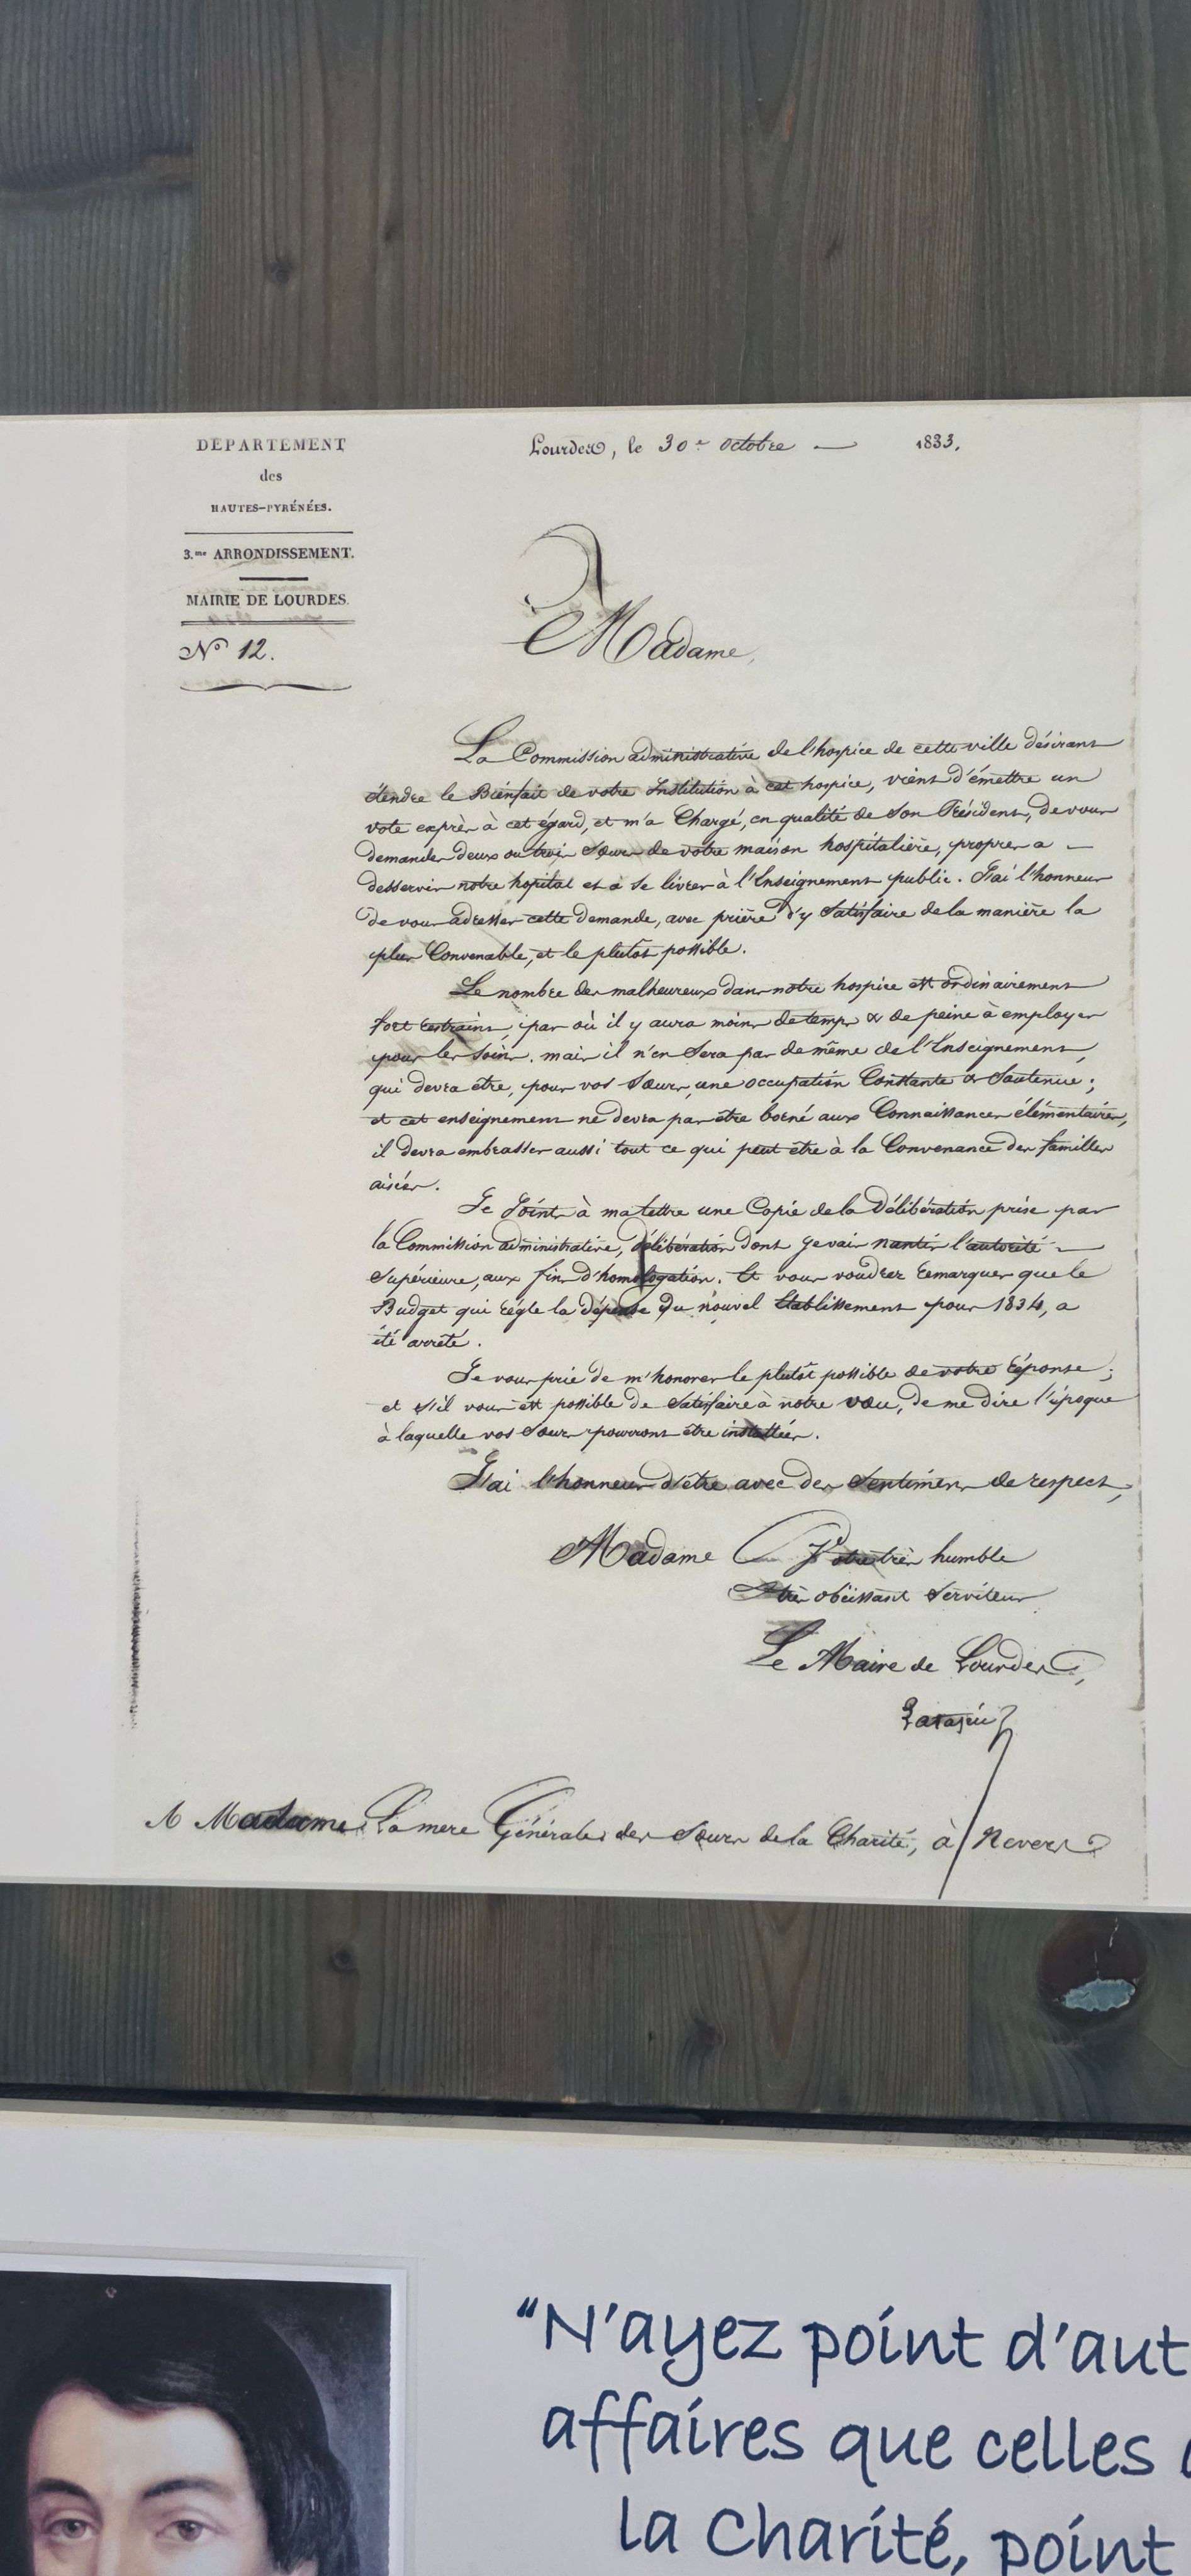 DÉPARTEMENT
des
HAUTES-PYRÉNÉES.
3.me ARRONDISSEMENT.
MAIRIE DE LOURDES.
N° 12.
Lourdes, le 30e Octobre 1833.
Madame,
La Commission administrative de l'hospice de cette ville désirant
étendre le Bienfait de votre Institution à cet hospice, vient d'émettre un
vote exprès à cet égard, et m'a Chargé, en qualité de Son Président, de vous
demander deux ou trois Sœurs de votre maison hospitalière, propres a
desservir notre hopital et à Se livrer à l'Enseignement public. J'ai l'honneur
de vous adresser cette demande, avec prière d'y Satisfaire de la manière la
plus Convenable, et le plutôt possible.
Le nombre des malheureux dans notre hospice est ordinairement
fort restraint, par où il y aura moins de temps & de peine à employer
pour les soins. mais il n'en Sera pas de même de l'Enseignement,
qui devra être, pour vos Sœurs, une occupation Constante & Soutenue;
et cet enseignement ne devra pas être borné aux Connaissances élémentaires,
il devra embrasser aussi tout ce qui peut être à la Convenance des familles
aisées.
Je Joints à ma lettre une Copie de la Délibération prise par
la Commission administrative, délibération dont je vais nantir l'autorité
Supérieure, aux fins d'homologation. Et vous voudrez remarquer que le
Budget qui règle la dépense du nouvel Etablissement pour 1834, a
été arrêté.
Je vous prie de m'honorer le plutôt possible de votre réponse;
et s'il vous est possible de Satisfaire à notre vœu, de me dire l'époque
à laquelle vos Sœurs pourront être installées.
J'ai l'honneur d'être avec des Sentimens de respect,
Madame Votre très humble
& très obéissant Serviteur
Le Maire de Lourdes,
A Madame La mere Générale des Sœurs de la Charité, à Nevers
"N'ayez point d'aut
affaires que celles
la Charité, point